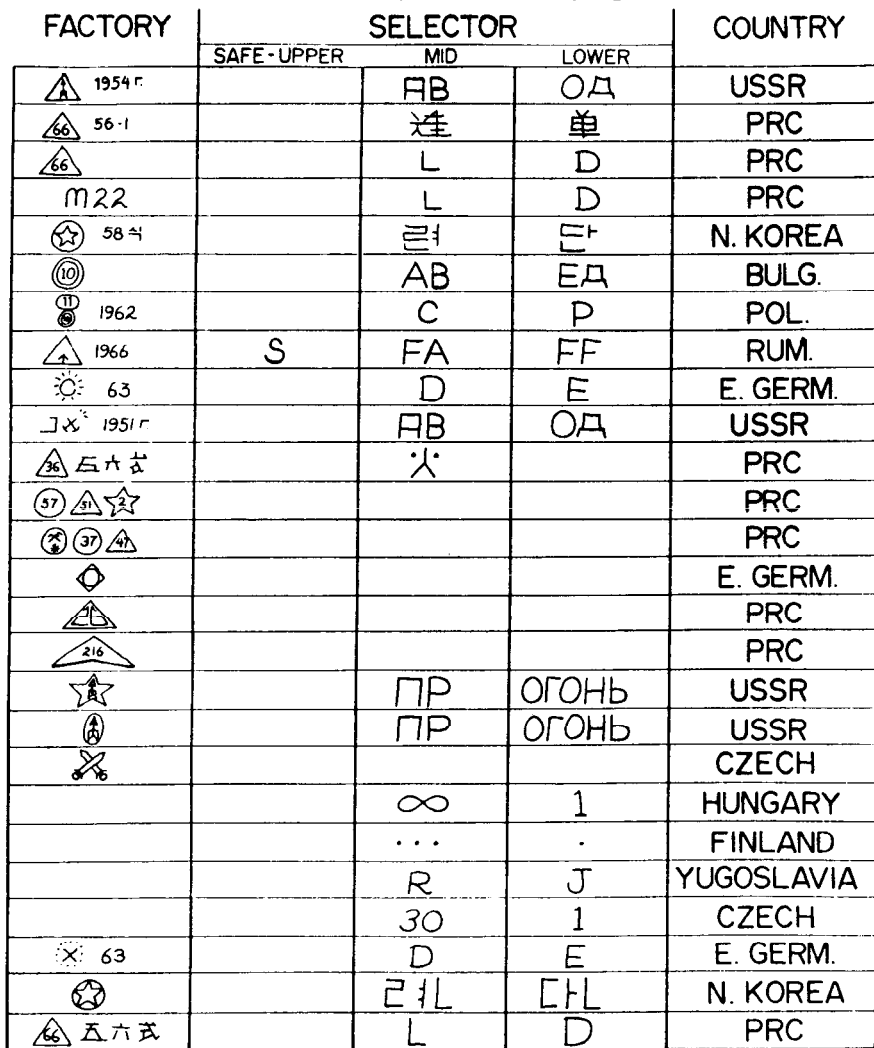 FACTORY SELECTOR COUNTRY
SAFE-UPPER MID LOWER
1954 г. АВ ОД USSR
66 56-1 連 单 PRC
66 L D PRC
M22 L D PRC
58식 려 단 N. KOREA
10 АВ ЕД BULG.
11 1962 C P POL.
1966 S FA FF RUM.
63 D E E. GERM.
1951 г АВ ОД USSR
36 五六式 PRC
57 51 2 PRC
37 47 PRC
E. GERM.
26 PRC
216 PRC
ПР ОГОНЬ USSR
ПР ОГОНЬ USSR
CZECH
∞ 1 HUNGARY
... . FINLAND
R J YUGOSLAVIA
30 1 CZECH
63 D E E. GERM.
려L 다L N. KOREA
66 五六式 L D PRC